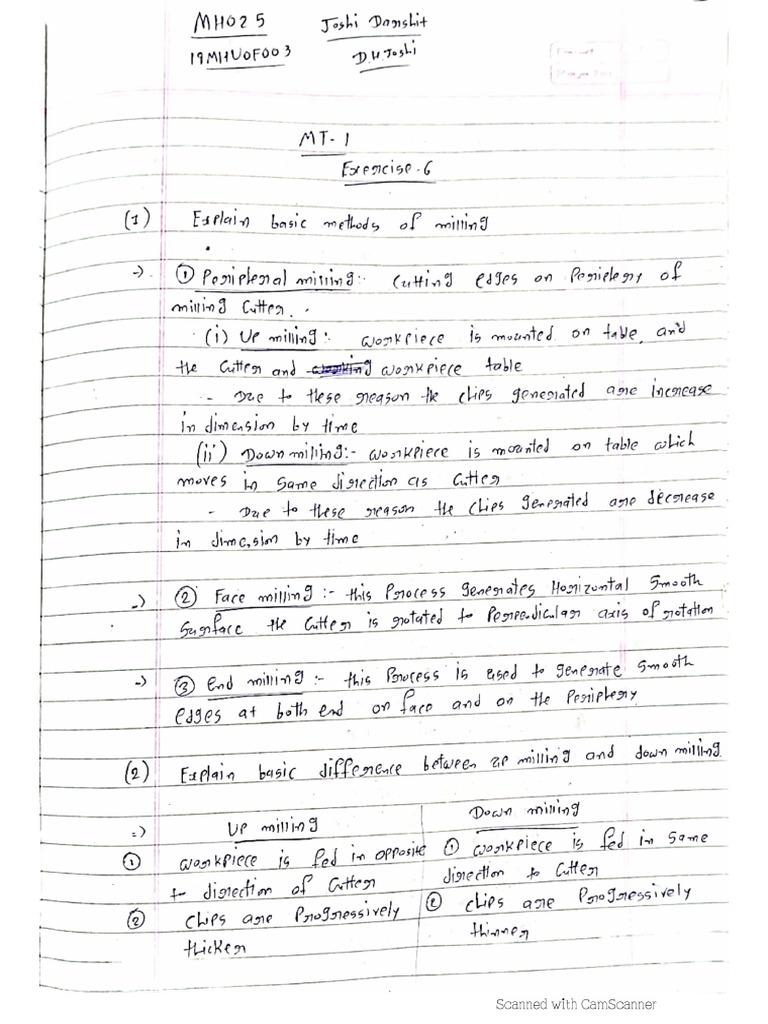 MH025 Joshi Darshit
19MHUOF003 D.H Joshi
MT-1
Exercise-6
(1) Explain basic methods of milling
-> ① Peripheral milling:- Cutting edges on Periphery of
milling Cutter.
(i) UP milling:- workpiece is mounted on table, and
the Cutter and workpiece table
- Due to these reason the chips generated are increase
in dimension by time
(ii) Down milling:- workpiece is mounted on table which
moves in same direction as Cutter
- Due to these reason the chips generated are decrease
in dimension by time
-> ② Face milling:- this Process generates Horizontal Smooth
Surface the Cutter is rotated to Perpendicular axis of rotation
-> ③ End milling:- this Process is used to generate smooth
edges at both end on face and on the Periphery
(2) Explain basic difference between up milling and down milling
=> UP milling Down milling
① workpiece is fed in opposite ① workpiece is fed in same
to direction of Cutter direction to Cutter
② chips are Progressively ② chips are Progressively
thicker thinner
Scanned with CamScanner